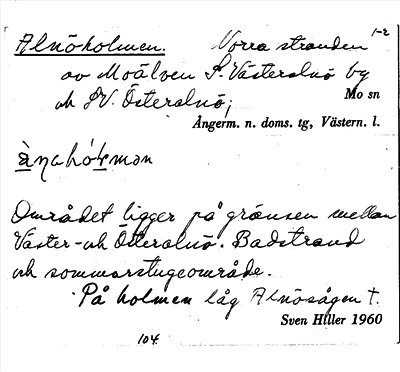 1-2
Alnöholmen. Norra stranden
av Moälven S. Västeralnö by
och SV. Österalnö;
Mo sn
Ångerm. n. doms. tg, Västern. l.
Området ligger på gränsen mellan
Väster- och Österalnö. Badstrand
och sommarstugeområde.
På holmen låg Alnösågen †.
Sven Hiller 1960
104